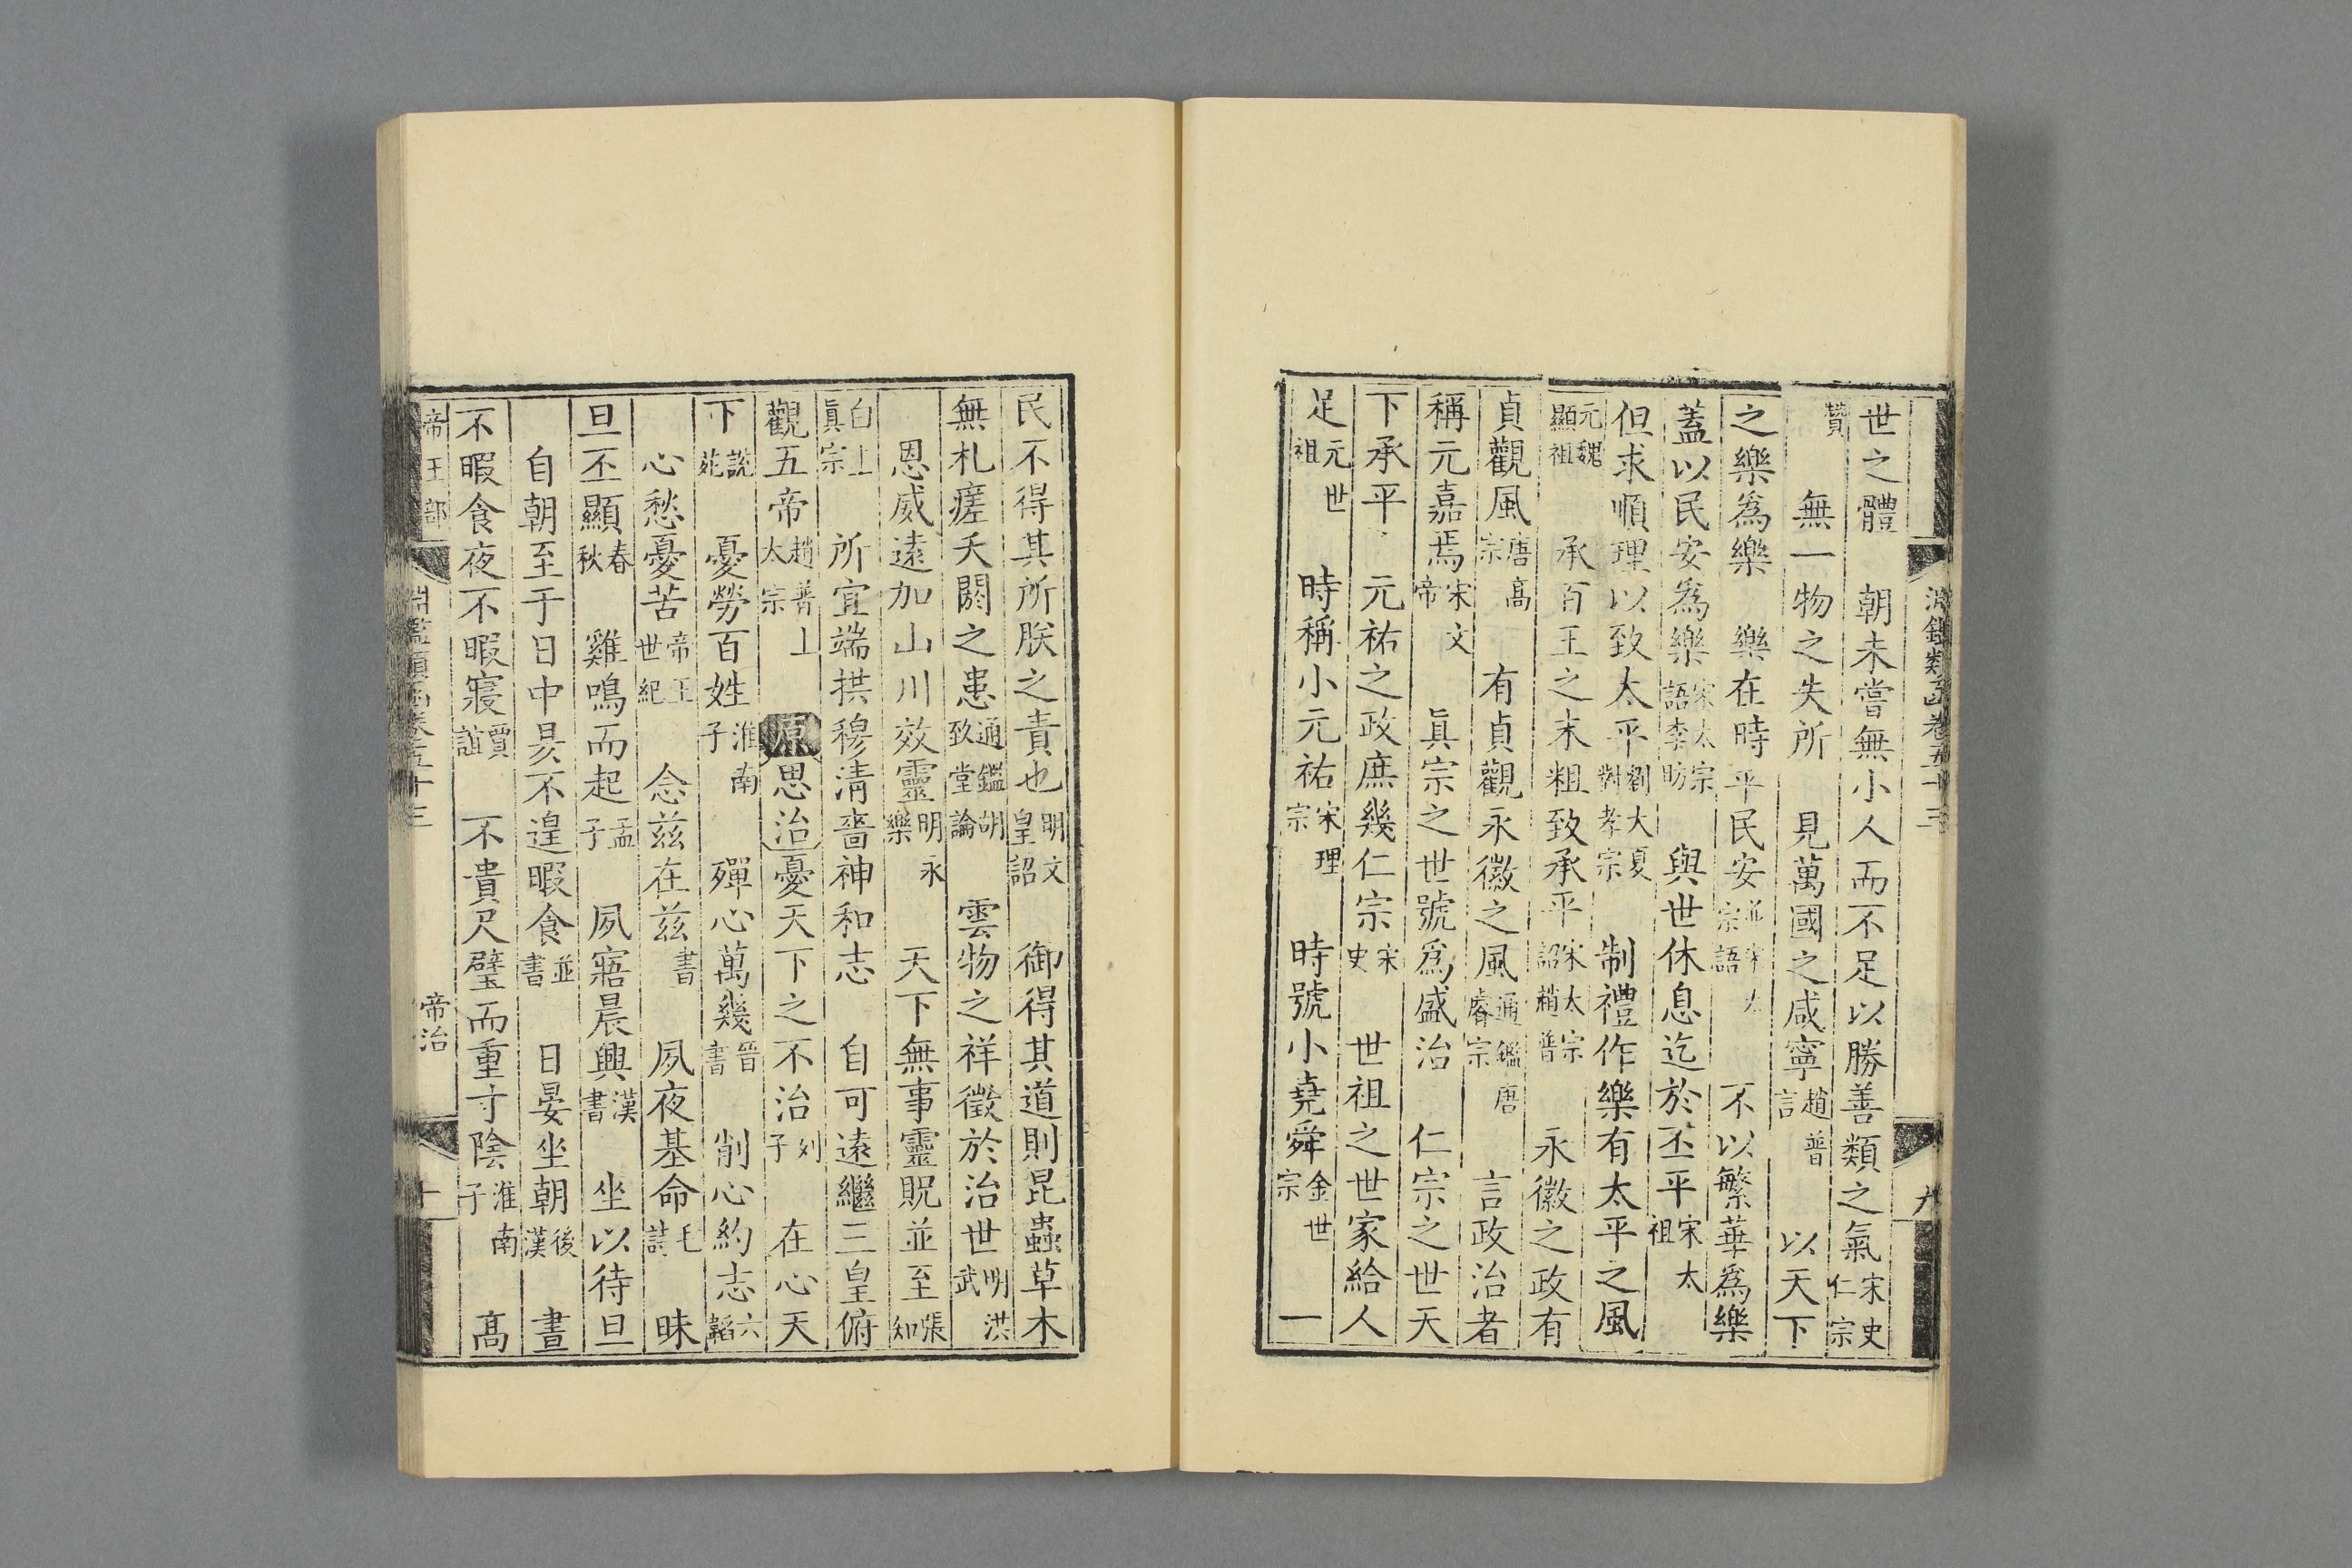 淵鑑類函卷五十三 九
世之體 朝未嘗無小人而不足以勝善類之氣宋史仁宗
贊 無一物之失所 見萬國之咸寧趙普言 以天下
之樂爲樂 樂在時平民安並宋太宗語 不以繁華爲樂
蓋以民安爲樂宋太宗語李昉 與世休息迄於丕平宋太祖
但求順理以致太平劉大夏對孝宗 制禮作樂有太平之風
元魏顯祖 承百王之末粗致承平宋太宗詔趙普 永徽之政有
貞觀風唐高宗 有貞觀永徽之風通鑑唐睿宗 言政治者
稱元嘉焉宋文帝 眞宗之世號爲盛治 仁宗之世天
下承平 元祐之政庶幾仁宗宋史 世祖之世家給人
足元世祖 時稱小元祐宋理宗 時號小堯舜金世宗 一
民不得其所朕之責也明文皇詔 御得其道則昆蟲草木
無札瘥夭閼之患通鑑胡致堂論 雲物之祥徵於治世明洪武
恩威遠加山川效靈明永樂 天下無事靈貺並至張知
白上眞宗 所宜端拱穆淸嗇神和志 自可遠繼三皇俯
觀五帝趙普上太宗 原思治憂天下之不治列子 在心天
下說苑 憂勞百姓淮南子 殫心萬幾晉書 削心約志六韜
心愁憂苦帝王世紀 念茲在茲書 夙夜基命毛詩 昧
旦丕顯春秋 雞鳴而起孟子 夙寤晨興漢書 坐以待旦
自朝至于日中昃不遑暇食並書 日晏坐朝後漢 晝
不暇食夜不暇寢賈誼 不貴尺璧而重寸陰淮南子 高
帝王部 淵鑑類函卷五十三 帝治 十